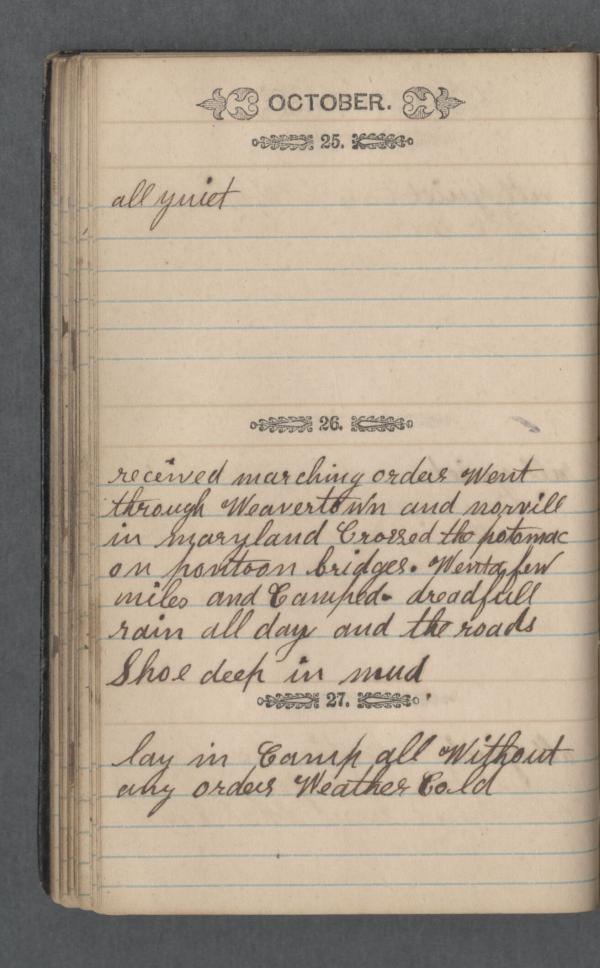 OCTOBER.
25.
all quiet
26.
received marching orders Went
through Weavertown and norvill
in maryland Crossed the potomac
on pontoon bridges. Went a few
miles and Camped. dreadfull
rain all day and the roads
Shoe deep in mud
27.
lay in Camp all Without
any orders Weather Cold